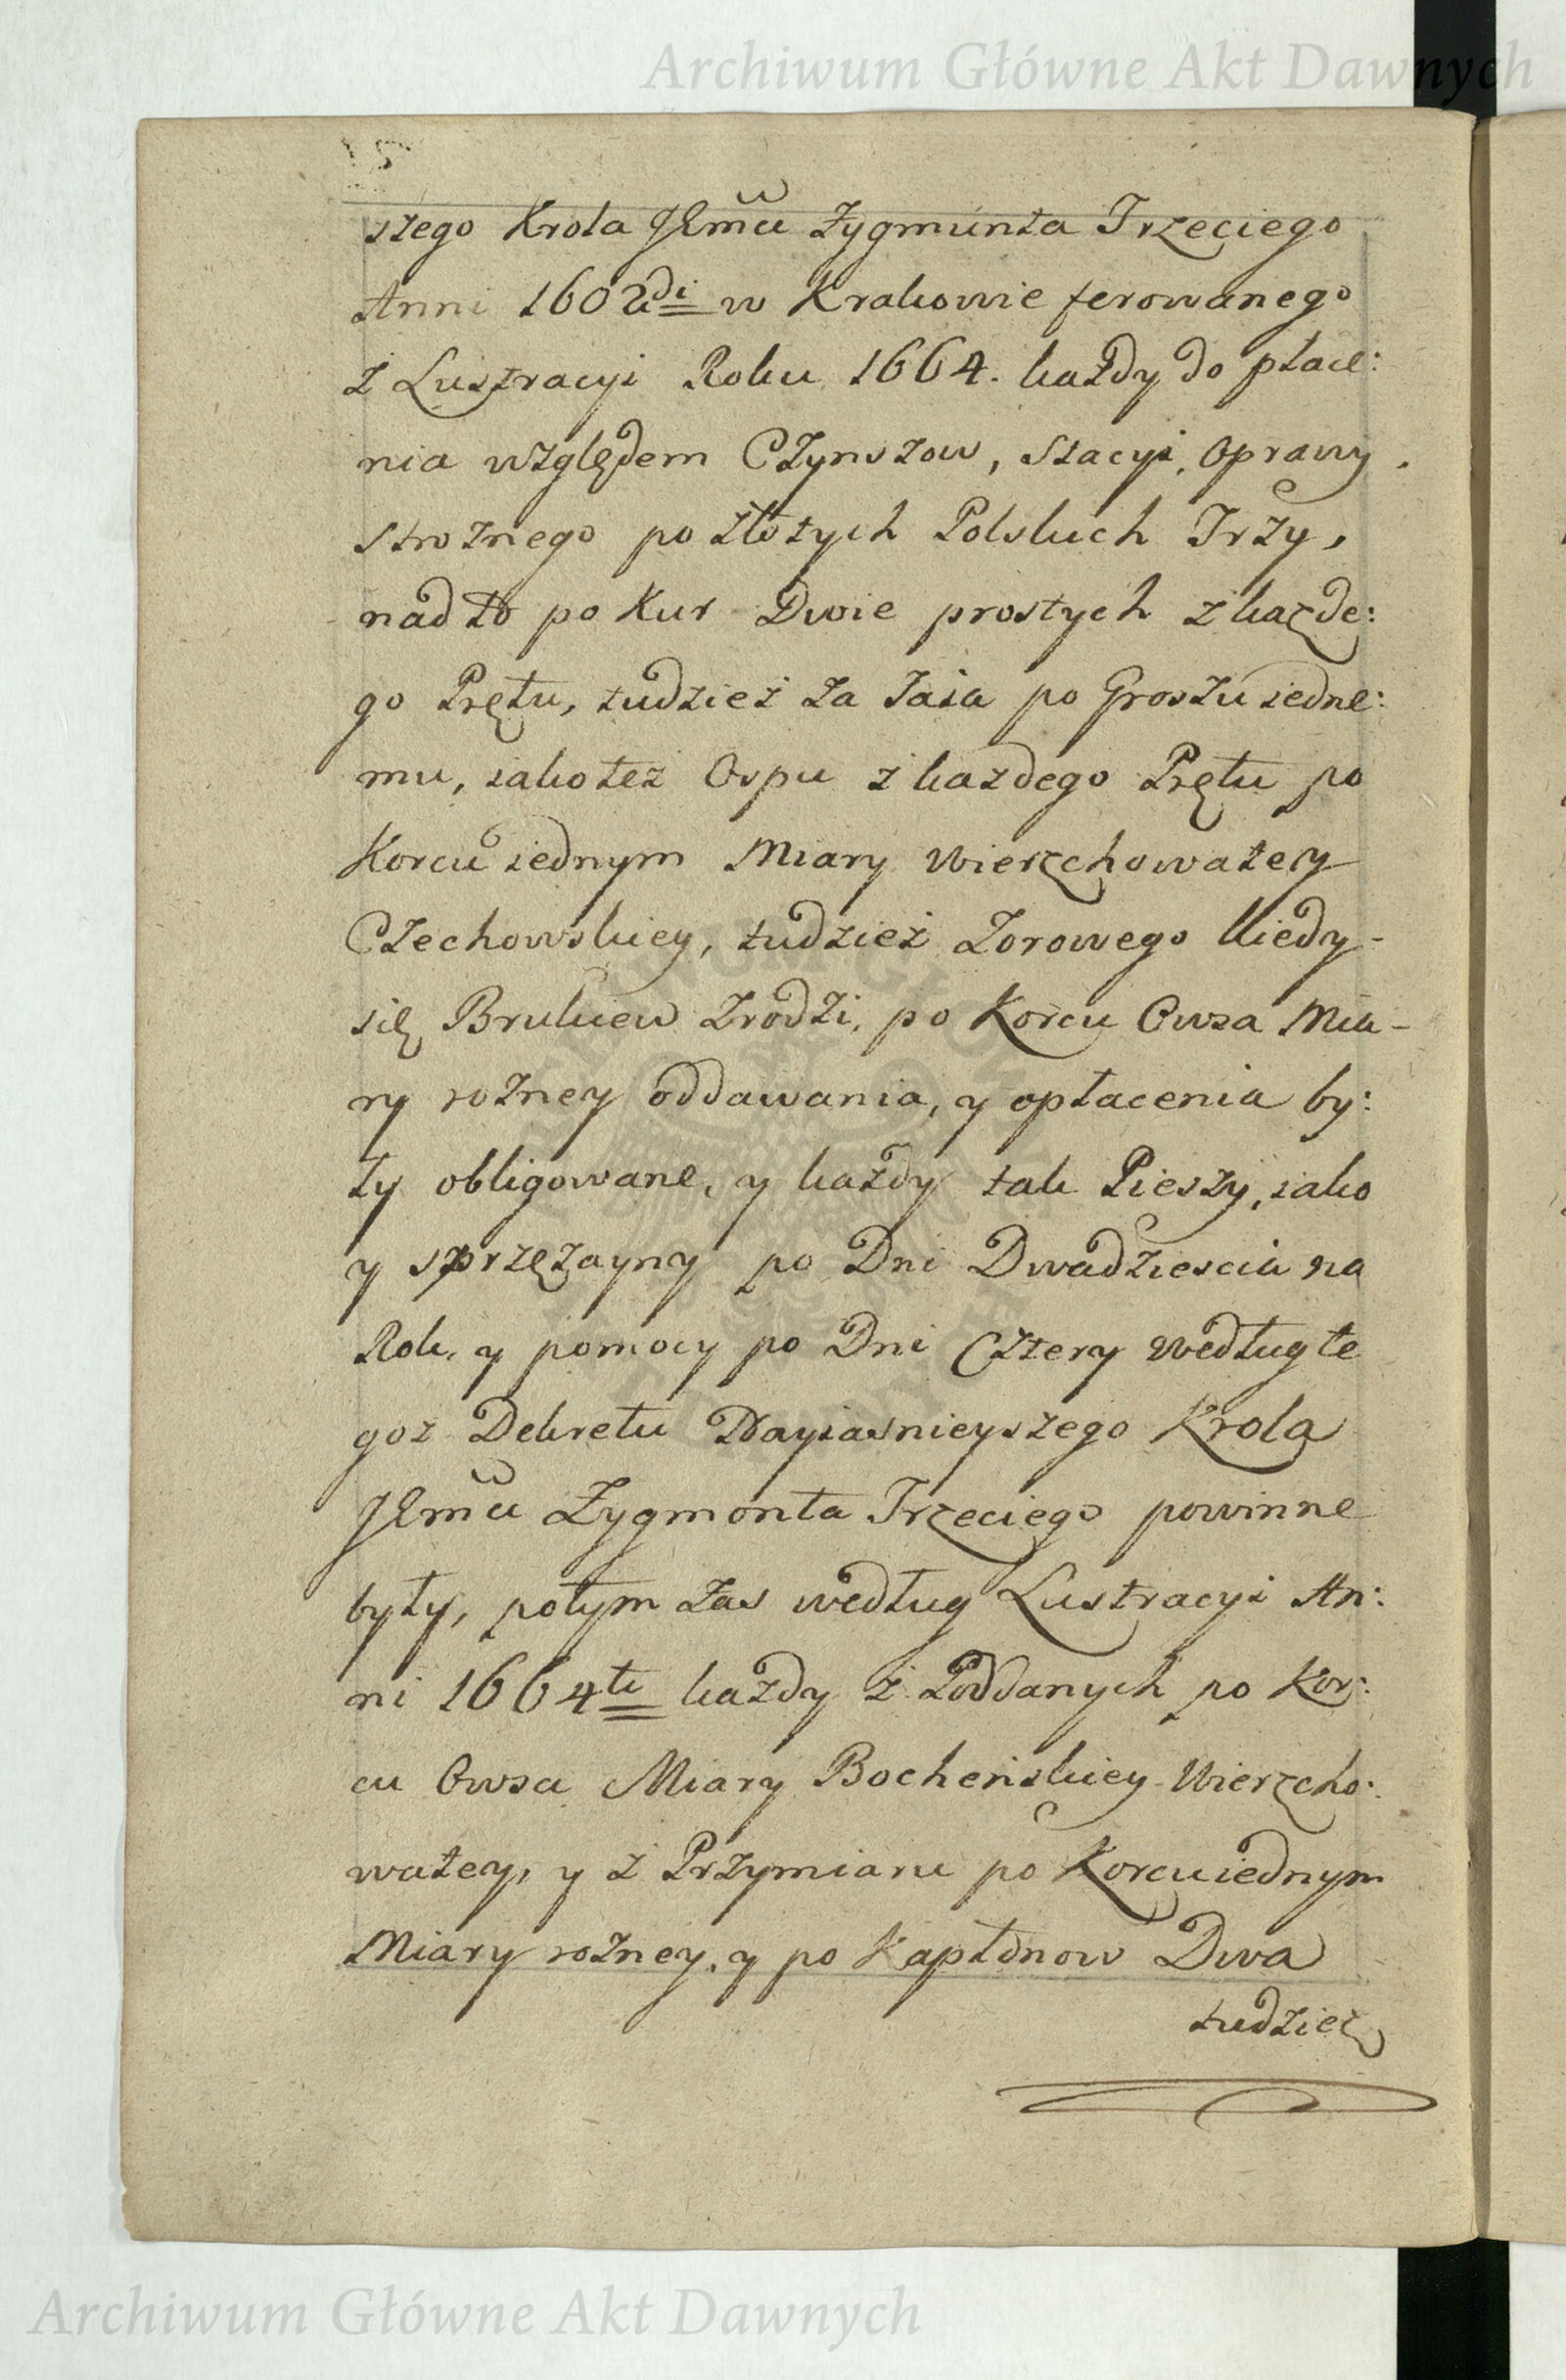 Archiwum Główne Akt Dawnych
szego Krola JEmći Zygmunta Trzeciego
Anni 1602di w Krakowie ferowanego
z Lustracyi Roku 1664. każdy do płace:
nia względem Czynszow, Stacyi, Oprawy,
strożnego po Złotych Polskich Trzy,
nadto po Kur Dwie prostych z każde:
go Prętu, tudzież za Jaia po Groszu iedne:
mu, iako też Ospu z każdego Prętu po
Korcu iednym Miary Wierzchowatey
Czechowskiey, tudzież Zorowego kiedy-
się Brukiew Zrodzi, po Korcu Owsa Mia-
ry rożney oddawania, y opłacenia by:
ły obligowane, y każdy tak Pieszy, iako
y sprzężayny po Dni Dwadziescia na
Rok, y pomocy po Dni Cztery według te
goż Dekretu Nayiasnieyszego Krola
JEmći Zygmonta Trzeciego powinne
były, potym zas według Lustracyi An:
ni 1664ti każdy z Poddanych po Kor:
cu Owsa Miary Bocheńskiey Wierzcho:
watey, y z Przymiaru po Korcu iednym
Miary rożney, y po Kapłonow Dwa
tudzież
Archiwum Główne Akt Dawnych